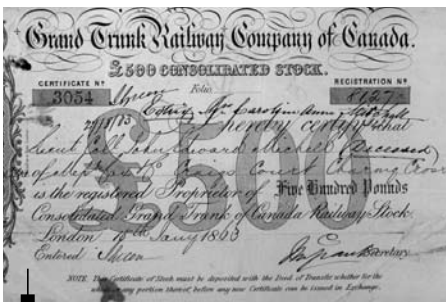 Grand Trunk Railway Company of Canada.
£500 CONSOLIDATED STOCK.
CERTIFICATE Nº
Folio
REGISTRATION Nº
3054
8127
hereby certify that
Lieut Col John Edward Mitchell (Deceased)
Craigs Court Charing Cross
is the registered Proprietor of Five Hundred Pounds
Consolidated Grand Trunk of Canada Railway Stock.
London 15th Jany 1863
Entered
Secretary.
£500
NOTE. This Certificate of Stock must be deposited with the Deed of Transfer whether for the
whole or any portion thereof, before any new Certificate can be issued in Exchange.